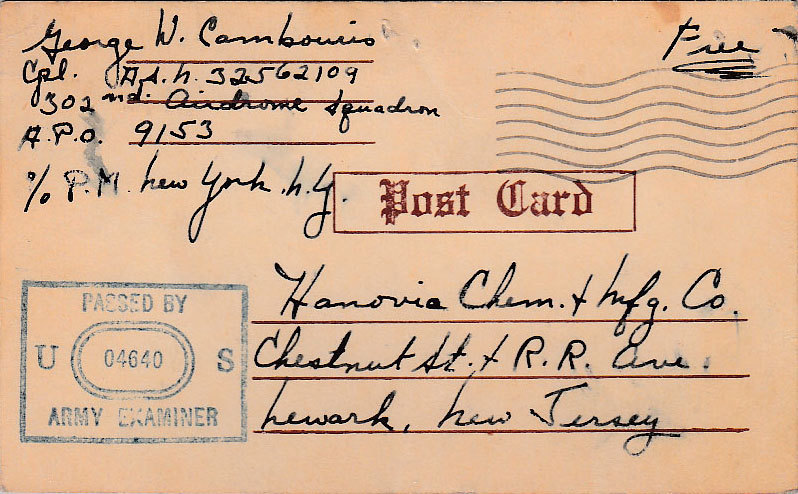 George W. Cambouris
Free
Cpl. A.S.N. 32562109
302nd. Airdrome Squadron
A.P.O. 9153
% P.M. New York. N.Y.
Post Card
PASSED BY
U 04640 S
ARMY EXAMINER
Hanovia Chem. & Mfg. Co.
Chestnut St. & R.R. Ave.
Newark, New Jersey